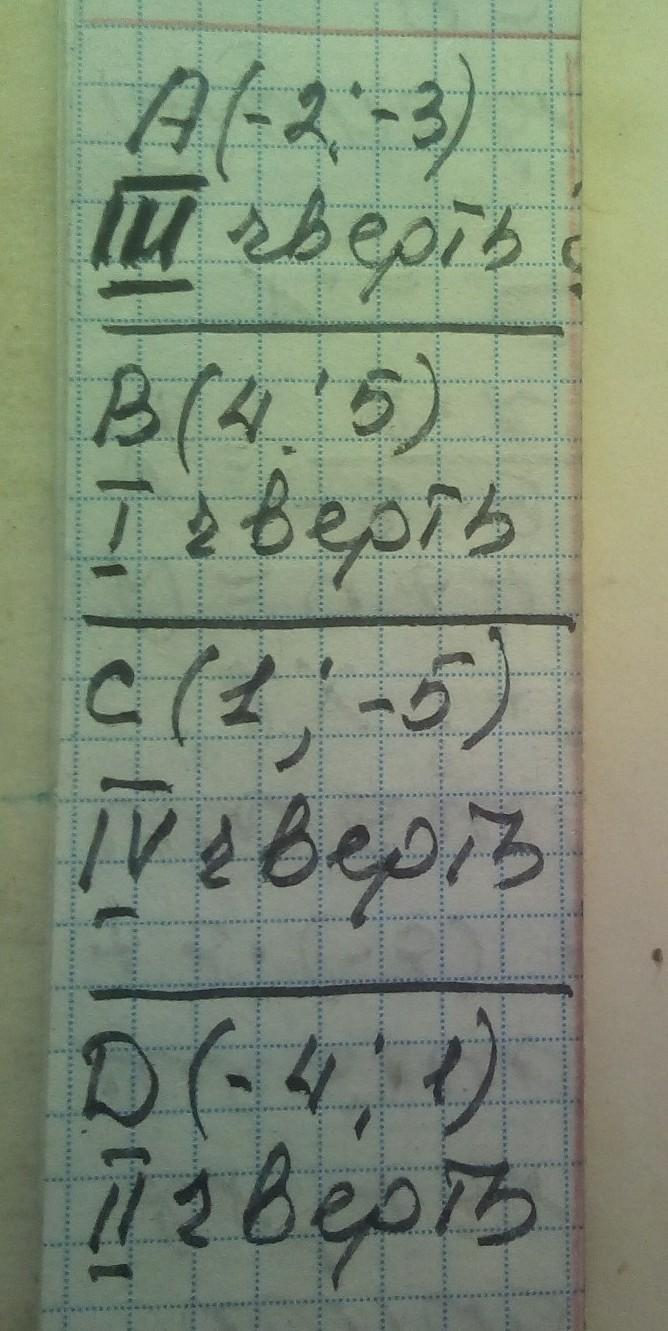 A(-2; -3)
III чверть
B(4; 5)
I чверть
C(1; -5)
IV чверть
D(-4; 1)
II чверть